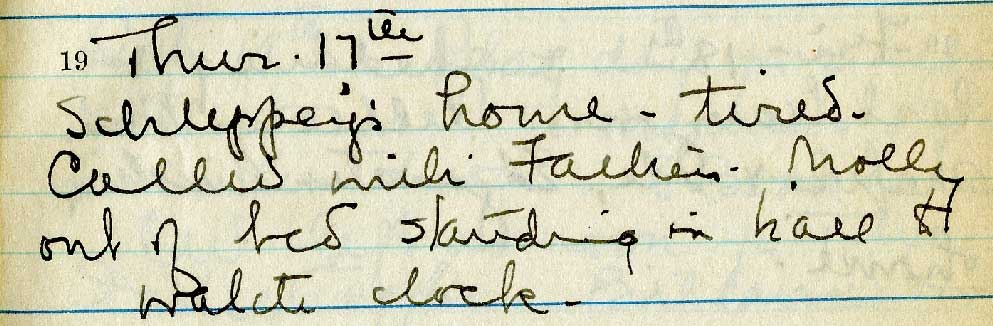 19 Thur. 17th
Schleppey's home - tired.
Called with Father. Molly
out of bed standing in hall to
watch clock -